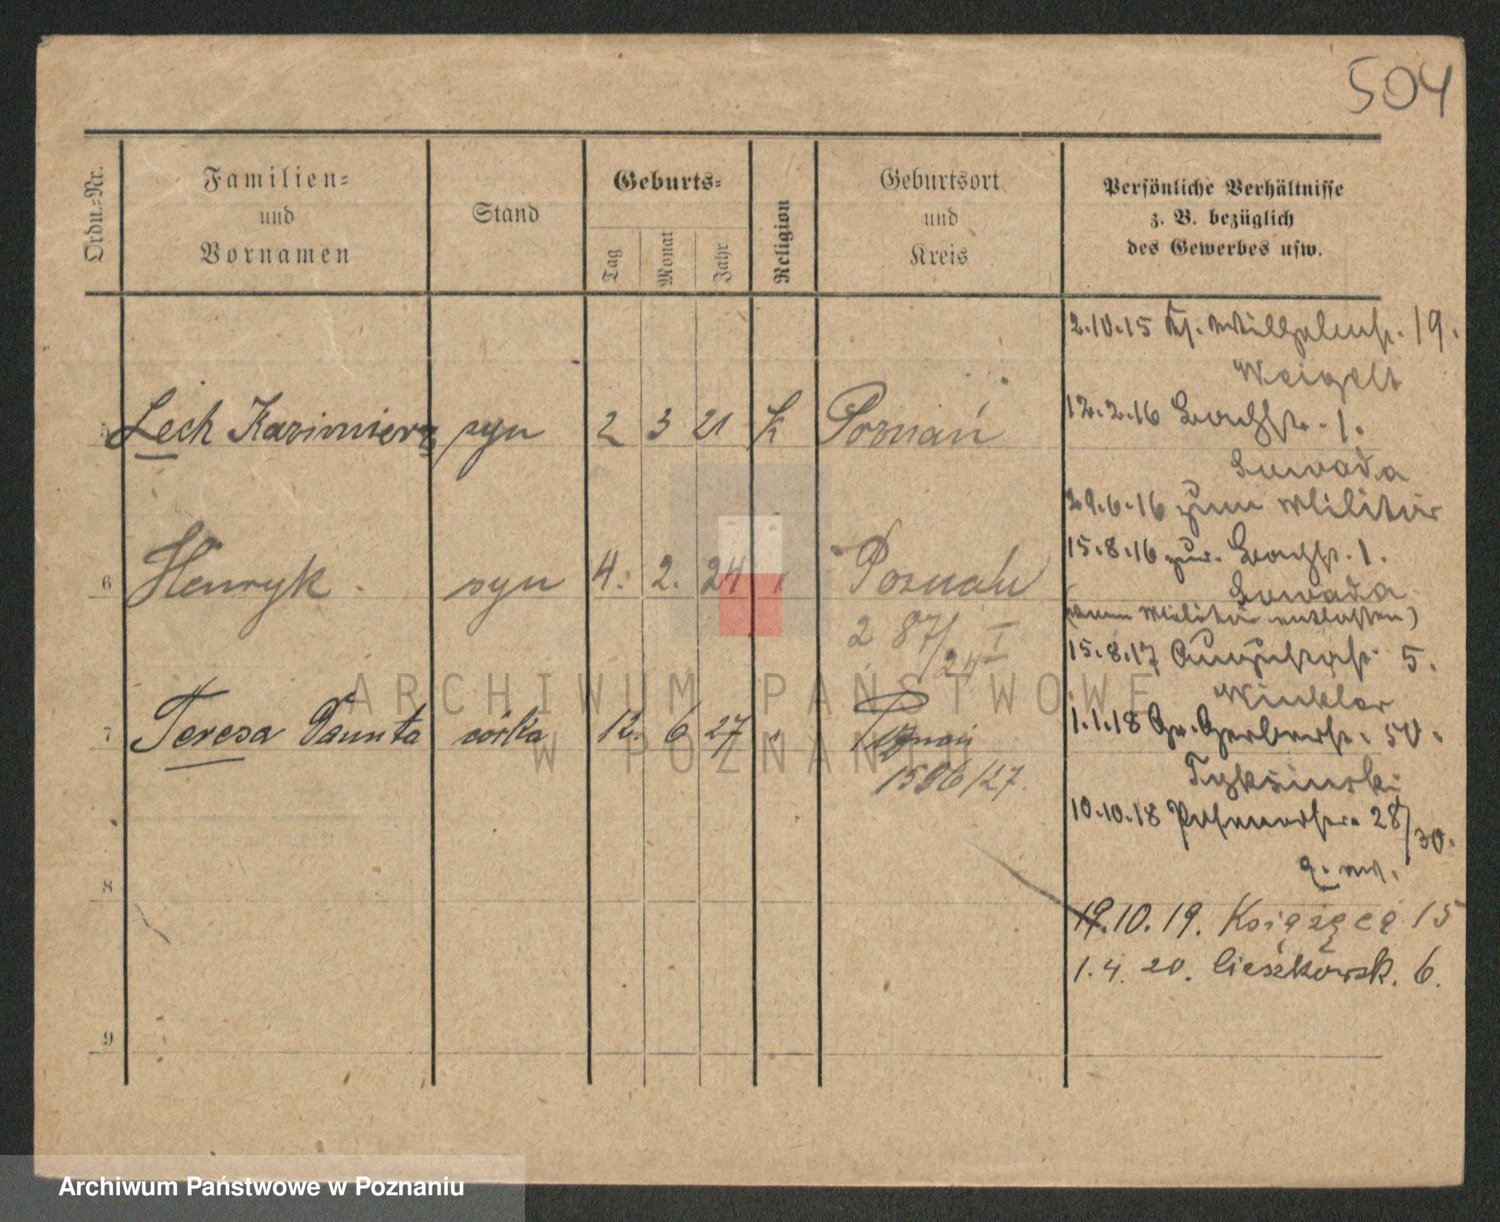 504
Ordn.-Nr.
Familien-
und
Vornamen
Stand
Geburts-
Tag
Monat
Jahr
Religion
Geburtsort
und
Kreis
Persönliche Verhältnisse
z. B. bezüglich
des Gewerbes usw.
2.10.15 Wilhelmstr. 19.
Weigelt
5 Lech Kazimierz syn 2 3 21 K Poznań
12.2.16 Bachstr. 1.
29.6.16 zum Militär
6 Henryk syn 4. 2. 24 Poznań
15.8.16 zur. Bachstr. 1.
(vom Militär entlassen)
2 87/24 I
15.8.17 Augustastr. 5.
Winkler
7 Teresa Danuta córka 12. 6 27 " Poznań
1586/27.
1.1.18 Gr. Gerberstr. 50.
10.10.18 28/30.
8
19.10.19. Książęca 15
1.4.20. Cieszkowsk. 6.
9
ARCHIWUM PAŃSTWOWE
W POZNANIU
Archiwum Państwowe w Poznaniu